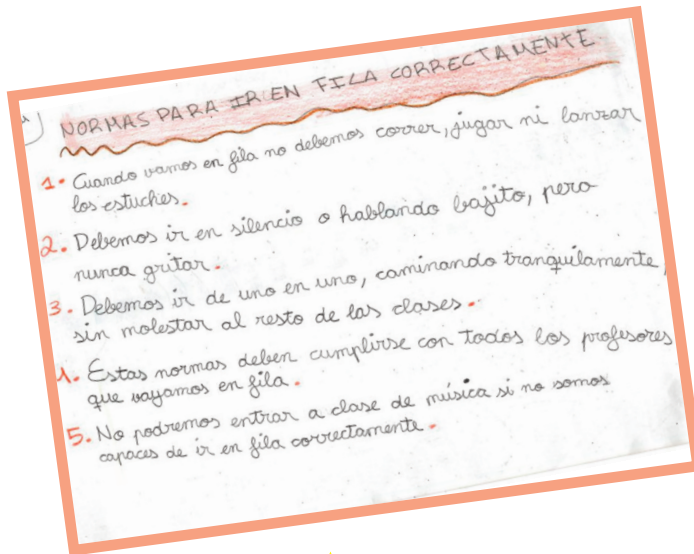 NORMAS PARA IR EN FILA CORRECTAMENTE.
1. Cuando vamos en fila no debemos correr, jugar ni lanzar
los estuches.
2. Debemos ir en silencio o hablando bajito, pero
nunca gritar.
3. Debemos ir de uno en uno, caminando tranquilamente,
sin molestar al resto de las clases.
4. Estas normas deben cumplirse con todos los profesores
que vayamos en fila.
5. No podremos entrar a clase de música si no somos
capaces de ir en fila correctamente.